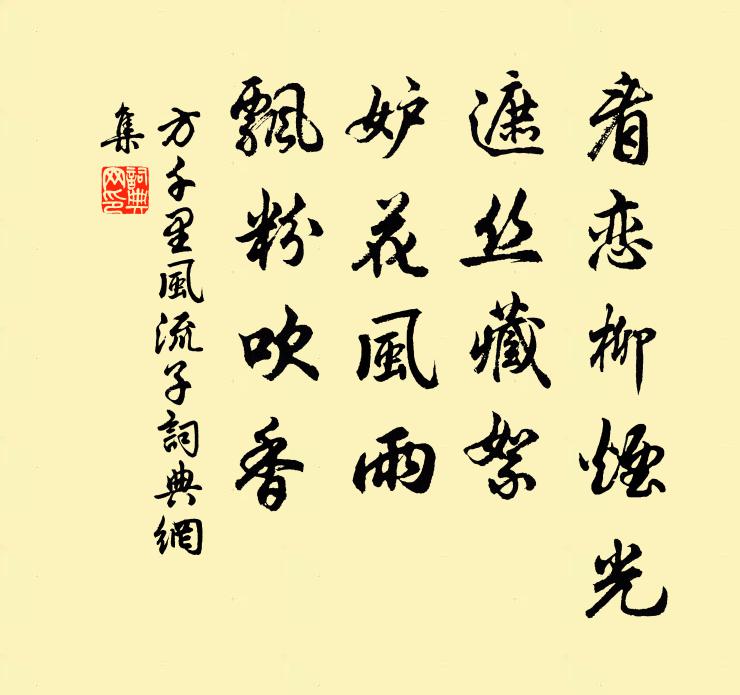 看恋柳煙光
遮丝藏絮
妒花風雨
飄粉吹香
方千里風流子詞典網
集
詞典
网印